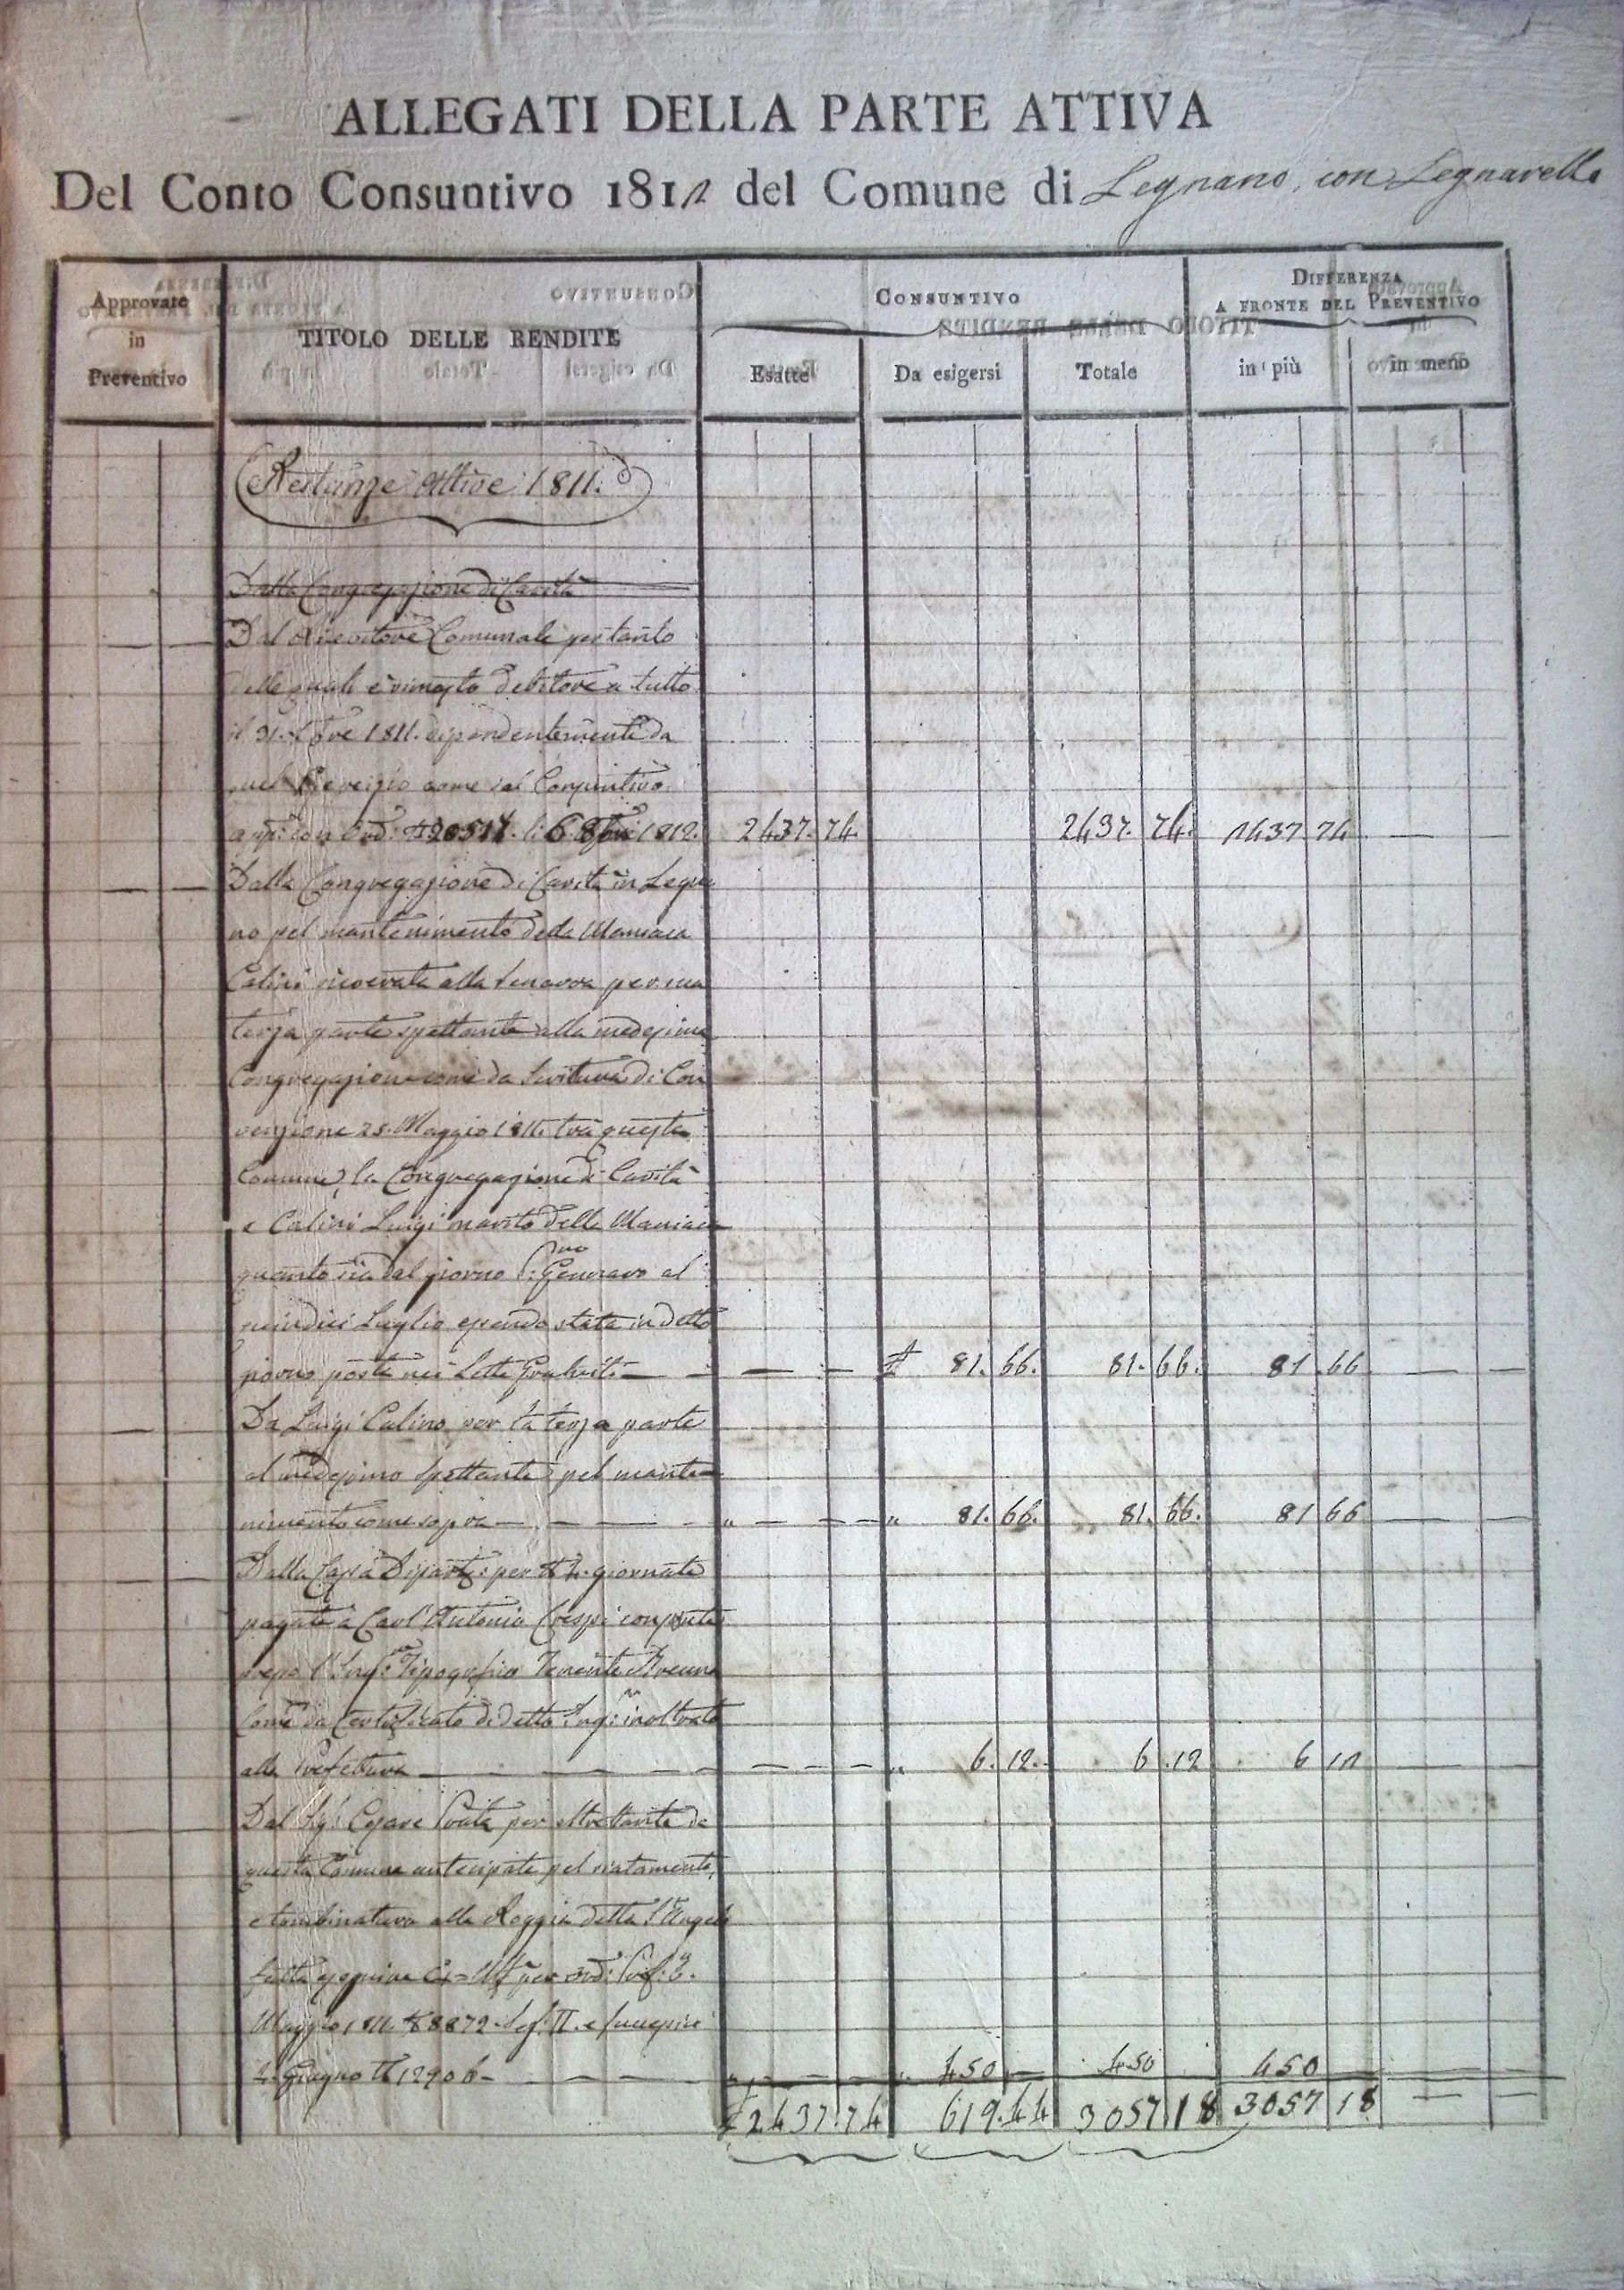 ALLEGATI DELLA PARTE ATTIVA
Del Conto Consuntivo 1812 del Comune di Legnano, con Legnarello
Approvate
in
Preventivo
TITOLO DELLE RENDITE
CONSUNTIVO
Esatte
Da esigersi
Totale
DIFFERENZA
A FRONTE DEL PREVENTIVO
in più
in meno
Restanze Attive 1811.
Dalla Congregazione di Carità
Dal Ricevitore Comunale per tanto
delle quali è rimasto debitore a tutto
il 31. Xbre 1811. dipendentemente da
quel come dal Consuntivo
con Ord. 20517. li 6. 8bre 1812. 2437. 74. 2437. 74. 2437 74
Dalla Congregazione di Carità in Legna
no pel mantenimento della Maniaca
Calini ricoverata alla Senavra per una
terza parte spettante alla medesima
Congregazione come da Scrittura di Con
venzione 25. Maggio 1811. tra questa
Comune, la Congregazione di Carità
e Calini Luigi marito della Maniaca
quanto sia dal giorno Gennaro al
quindici Luglio essendo stata in detto
giorno posta nei Letti Gratuiti 81. 66. 81. 66. 81 66
Da Luigi Calino per la terza parte
al medesimo spettante pel mante
nimento come sopra 81. 66. 81. 66. 81 66
Dalla Cassa Dipart. per giornate
pagate a Carl' Antonio Crespi
Tenente
come da Certificato di detto Ing. inoltrato
alla Prefettura 6. 12. 6. 12 6 12
Dal Sig. Cesare Prata per altrettante da
questa Comune antecipate pel riatamento,
e tombinatura alla Roggia detta S. Angelo
fatta per ord. Pref. 3.
Maggio 1811. 8872. Sez. II. e
Giugno 12906 450 450 450
2437. 74 619. 44 3057 18 3057 18